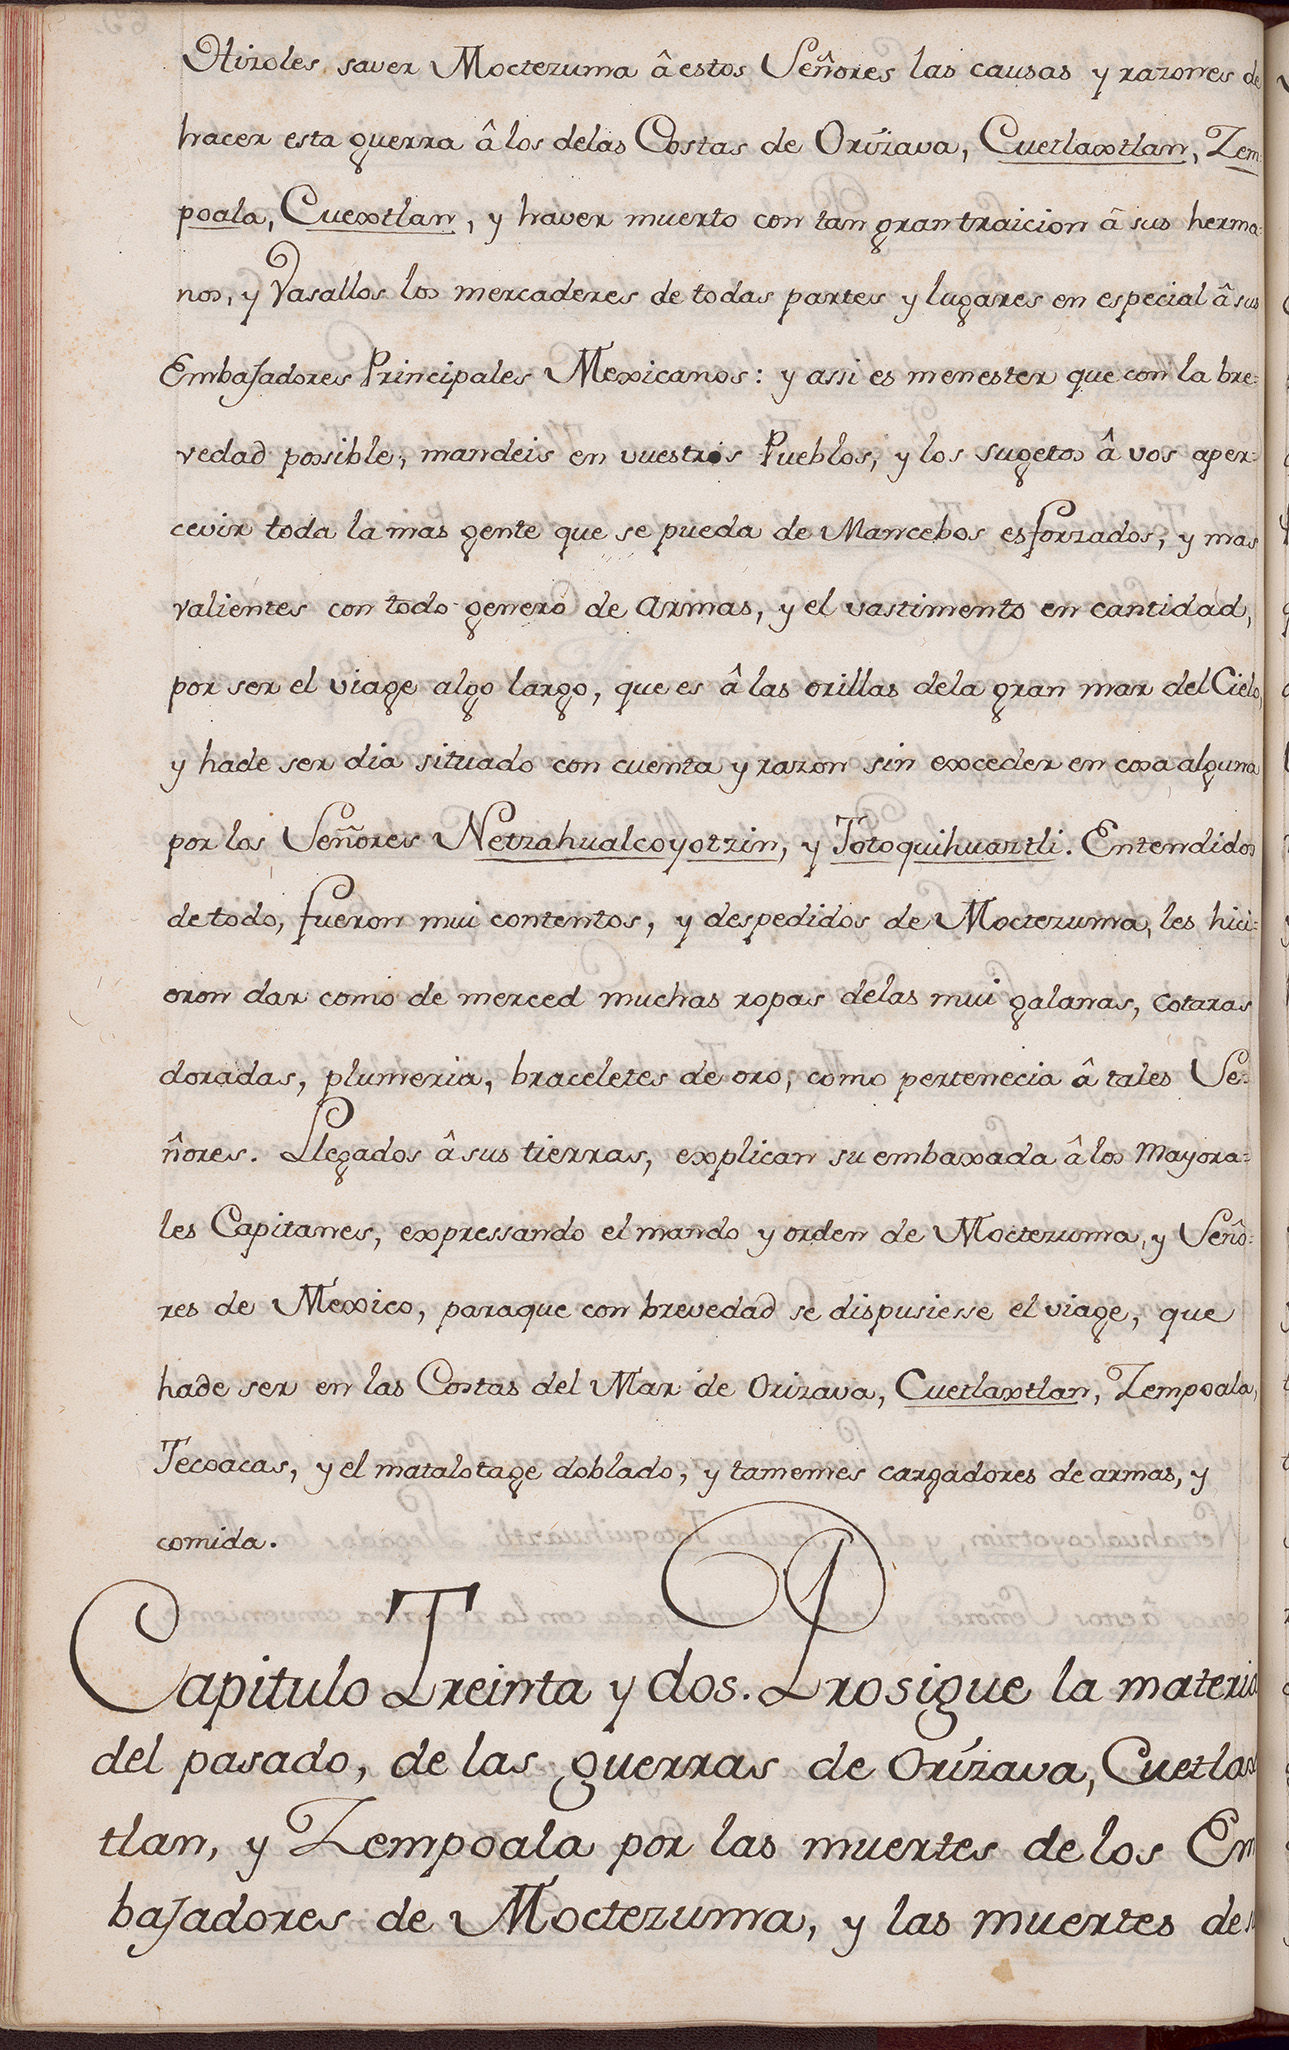 Hizoles saver Moctezuma â estos Señores las causas y razones de
hacer esta guerra â los delas Costas de Orizava, Cuetlaxtlan, Zem-
poala, Cuextlan, y haver muerto con tan gran traicion â sus herma-
nos, y Vasallos los mercaderes de todas partes y lugares en especial â sus
Embajadores Principales Mexicanos: y assi es menester que con la bre-
vedad possible, mandeis en vuestros Pueblos, y los sugetos â vos aper-
cevir toda la mas gente que se pueda de Mancebos esforzados, y mas
valientes con todo genero de armas, y el vastimento en cantidad,
por ser el viage algo largo, que es â las orillas dela gran mar del Cielo,
y hade ser dia situado con cuenta y razon sin exceder en cosa alguna
por los Señores Netzahualcoyotzin, y Totoquihuaztli. Entendidos
de todo, fueron mui contentos, y despedidos de Moctezuma, les hici-
eron dar como de merced muchas ropas delas mui galanas, cotaras
doradas, plumeria, braceletes de oro, como pertenecia â tales Se-
ñores. Llegados â sus tierras, explican su embaxada â los Mayora=
les Capitanes, expressando el mando y orden de Moctezuma, y Seño-
res de Mexico, paraque con brevedad se dispusiesse el viage, que
hade ser en las Costas del Mar de Orizava, Cuetlaxtlan, Zempoala,
Tecoacas, y el matalotage doblado, y tamemes cargadores de armas, y
comida.
Capitulo Treinta y dos. Prosigue la materia
del pasado, de las guerras de Orizava, Cuetlax
tlan, y Zempoala por las muertes de los Em
bajadores de Moctezuma, y las muertes de